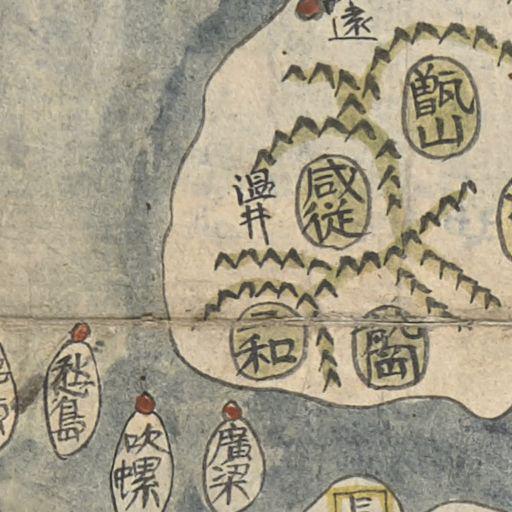 遠
甑山
咸從
溫井
三和
龍岡
愁島
吹螺
廣梁